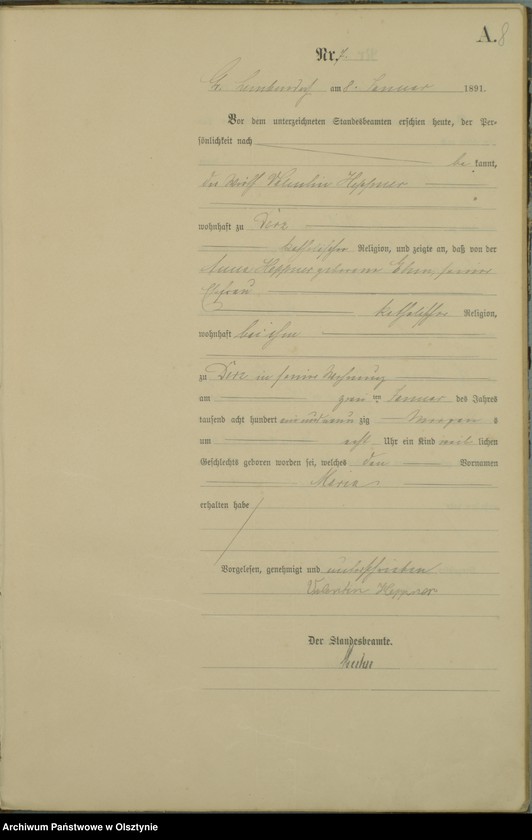 A. 8
Nr. 7.
am 8. Januar 1891.
Vor dem unterzeichneten Standesbeamten erschien heute, der Per-
sönlichkeit nach
be kannt,
der Wirth Valentin Heppner
wohnhaft zu Derz
katholischer Religion, und zeigte an, daß von der
Anna Heppner geborene seiner
Ehefrau
katholischer Religion,
wohnhaft bei ihm
zu Derz in seiner Wohnung
am ten Januar des Jahres
tausend acht hundert ein und neun zig Morgens
um acht Uhr ein Kind weib lichen
Geschlechts geboren worden sei, welches den Vornamen
Maria
erhalten habe
Vorgelesen, genehmigt und unterschrieben
Valentin Heppner
Der Standesbeamte.
Archiwum Państwowe w Olsztynie